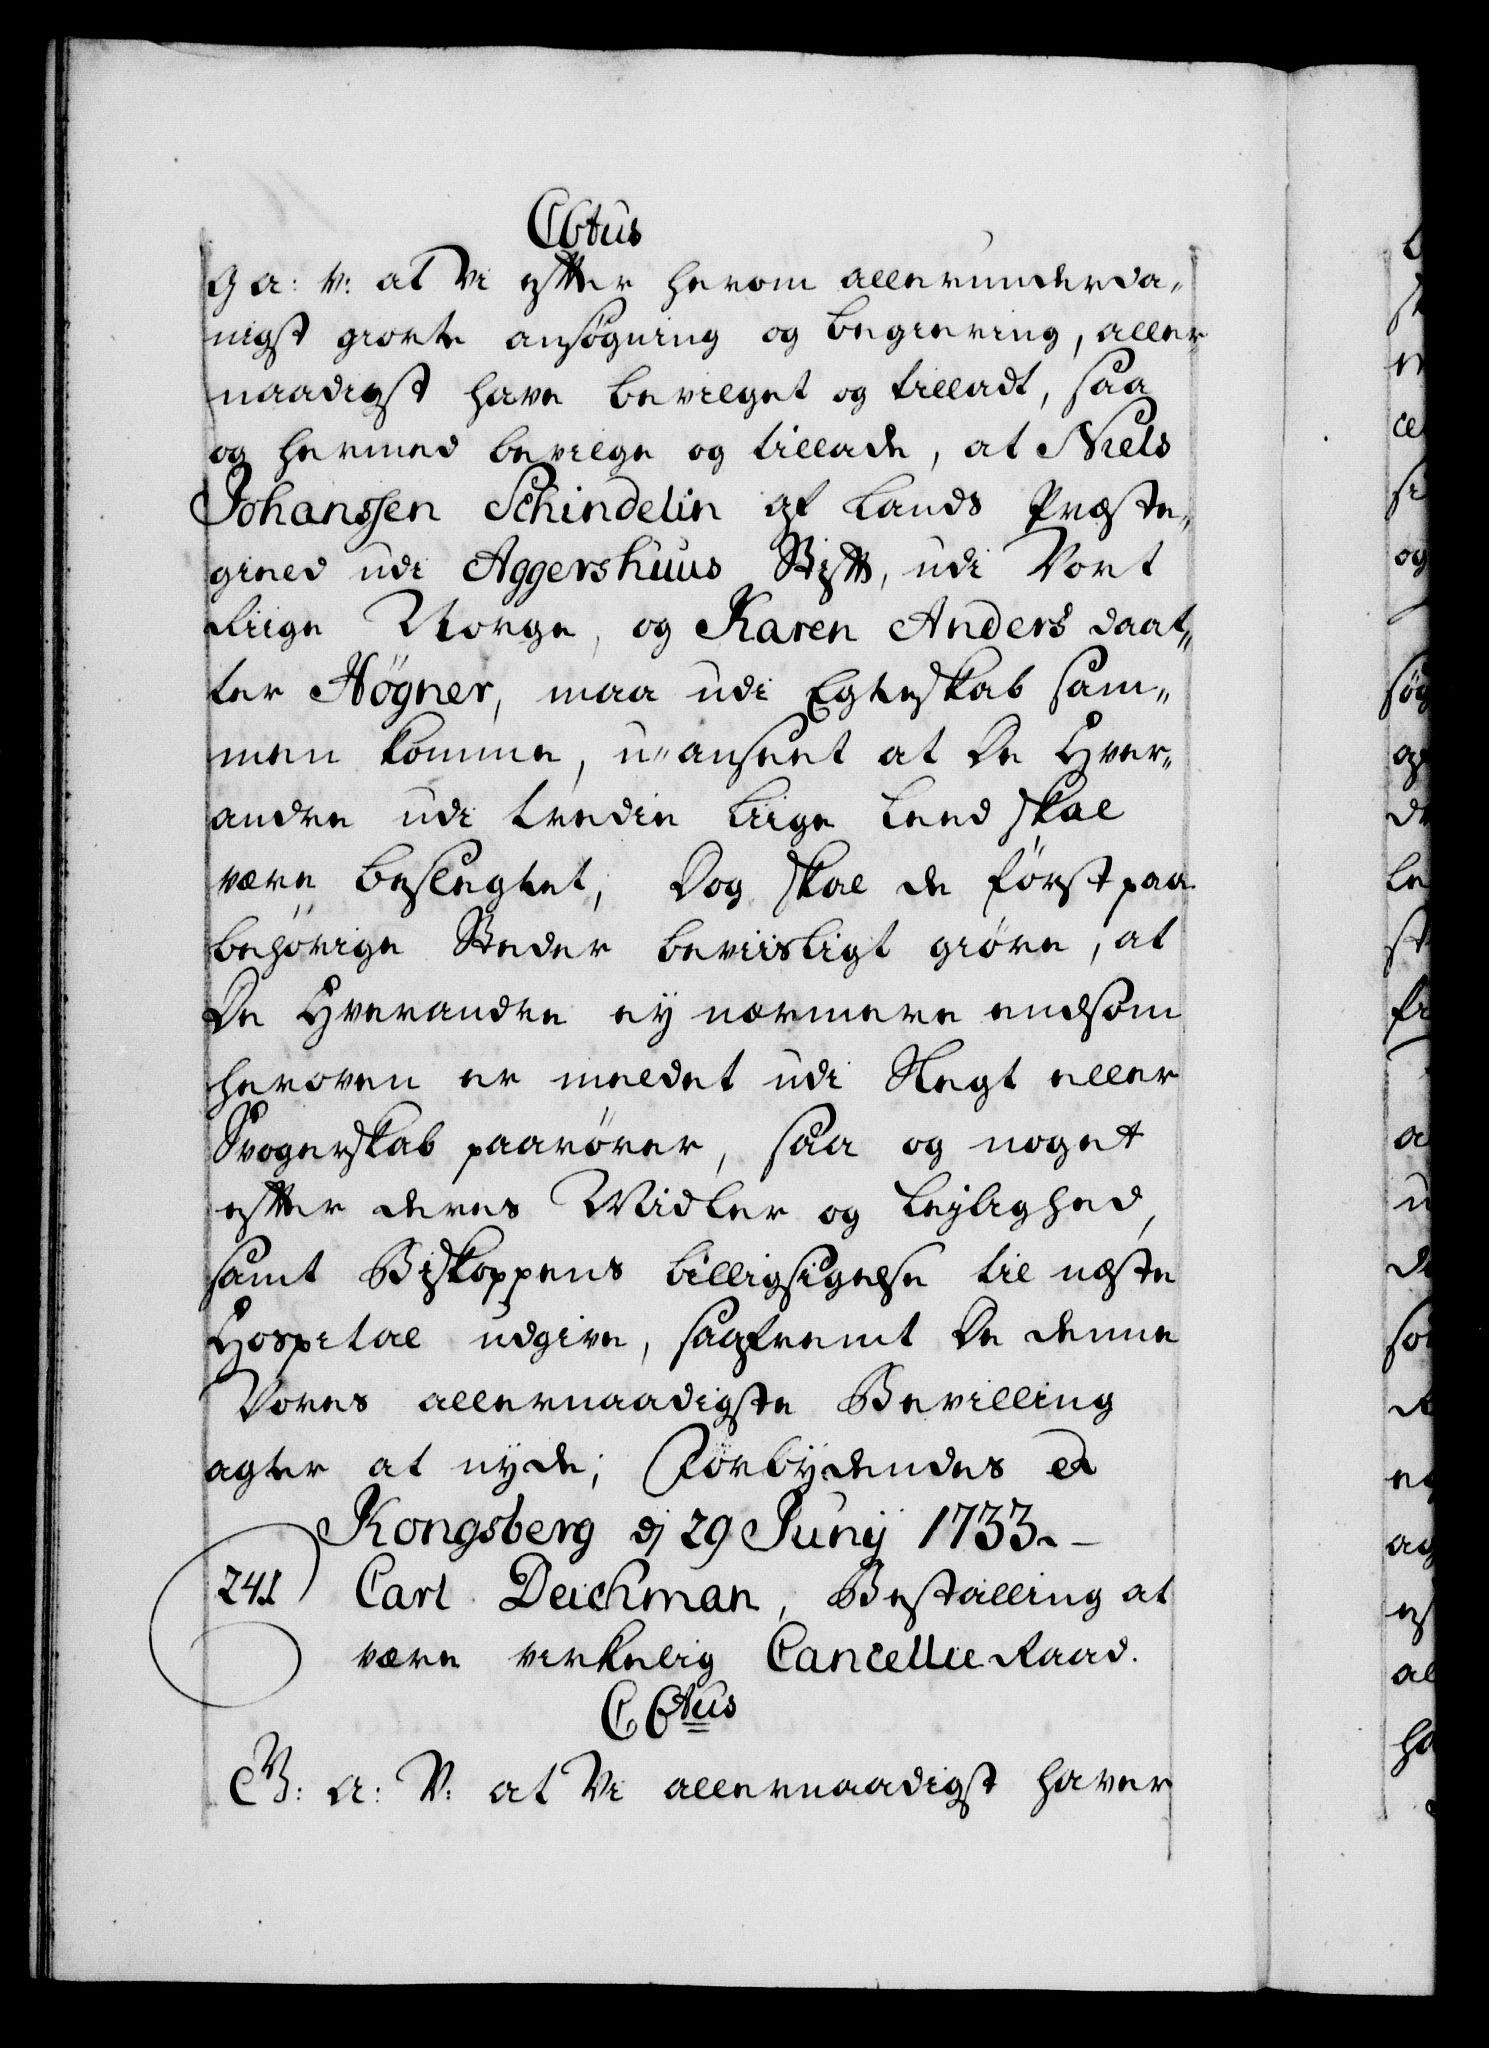 C6tus
G a: V: at Vi efter herom allerunderda„
nigst giorte ansøgning og begiering, aller
naadigst have bevilget og tilladt, saa
og hermed bevilge og tillade, at Niels
Johanssen Schindelin af Lands Præste„
gield udi Aggershuus Stift, udi Vort
Riige Norge, og Karen Anders daat„
ter Högner, maa udi Egteskab sam„
men komme, u„anseet at De Hver„
andre udi tredie liige Leed skal
være beslegtet, Dog skal de först paa
behörige Steder beviisligt giöre, at
De Hverandre ey nærmere end som
heroven er meldet udi Slegt eller
Svogerskab paarörer, saa og noget
efter deres Midler og leylighed,
samt Biskoppens billigsigelse til næste
Hospital udgive, saafremt De denne
Vores allernaadigste Bevilling
agter at nyde; Forbydendes &
Kongsberg dj 29 Junij 1733.
241 Carl Deichman, Bestalling at
være virkelig Cancellie Raad.
C6tus
G: A: V: at Vi allernaadigst haver